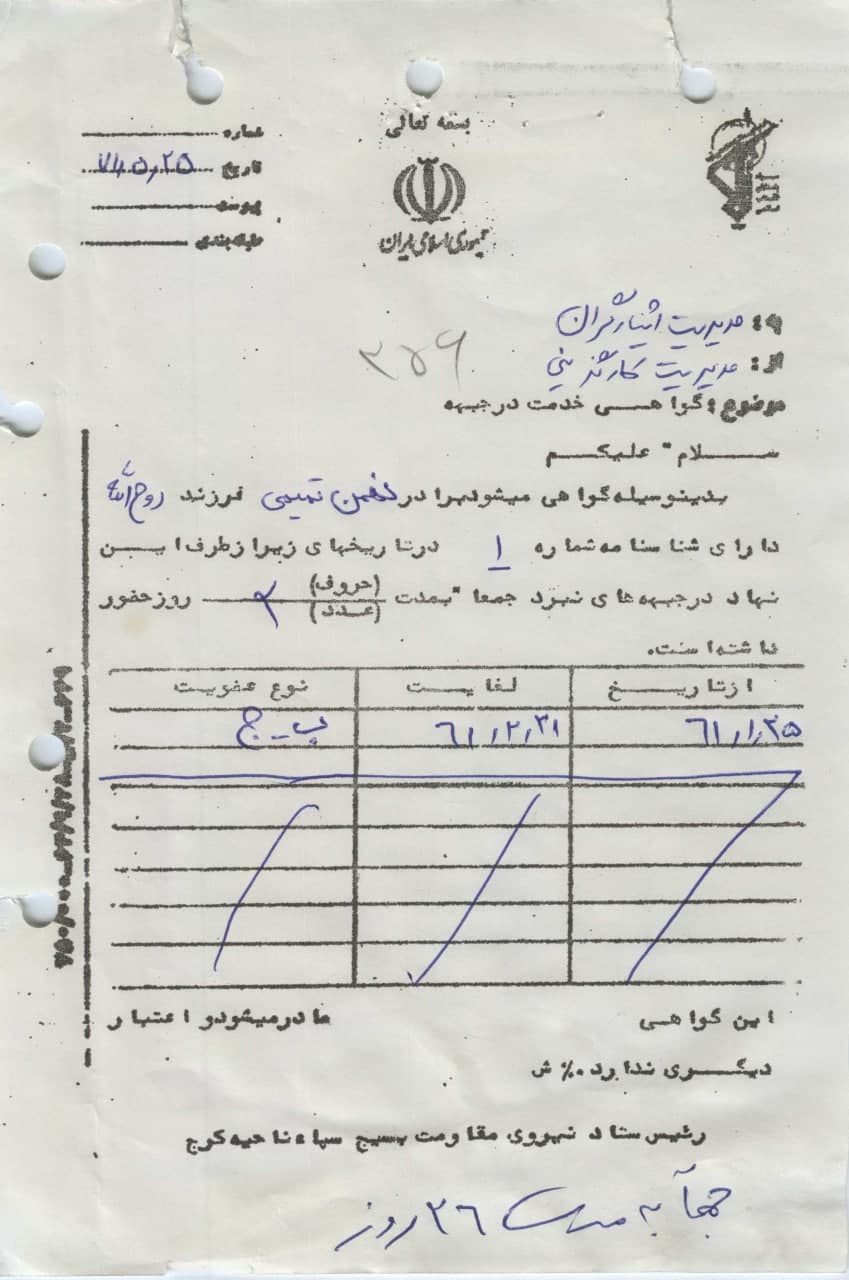 بسمه تعالی
جمهوری اسلامی ایران
شماره
تاریخ ۷۱٫۵٫۲۵
پیوست
طبقه‌بندی
به: مدیریت ایثارگران
از: مدیریت کارگزینی
۳۵۶
موضوع: گواهی خدمت در جبهه
سلام علیکم
بدینوسیله گواهی میشود برادر بهمن تمیمی فرزند روح‌الله
دارای شناسنامه شماره ۱ در تاریخهای زیر از طرف این
نهاد در جبهه‌های نبرد جمعا" بمدت (حروف) (عدد) روز حضور
داشته است.
از تاریخ لغایت نوع عضویت
۶۱٫۱٫۲۵ ۶۱٫۲٫۳۱ ب-ج
این گواهی صادر میشود و اعتبار
دیگری ندارد.٪ ش
رئیس ستاد نیروی مقاومت بسیج سپاه ناحیه کرج
جمعاً به مدت ۳۶ روز